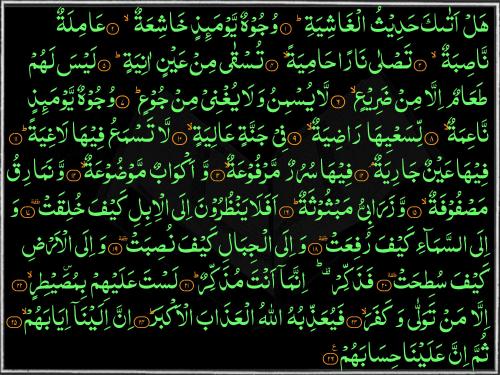 هَلْ اَتٰىكَ حَدِيْثُ الْغَاشِيَةِؕ ﴿۱﴾ وُجُوْهٌ يَّوْمَىِٕذٍ خَاشِعَةٌ ۙ ﴿۲﴾ عَامِلَةٌ
نَّاصِبَةٌ ۙ ﴿۳﴾ تَصْلٰى نَارًا حَامِيَةً ۙ ﴿۴﴾ تُسْقٰى مِنْ عَيْنٍ اٰنِيَةٍؕ ﴿۵﴾ لَيْسَ لَهُمْ
طَعَامٌ اِلَّا مِنْ ضَرِيْعٍ ۙ ﴿۶﴾ لَّا يُسْمِنُ وَلَا يُغْنِيْ مِنْ جُوْعٍؕ ﴿۷﴾ وُجُوْهٌ يَّوْمَىِٕذٍ
نَّاعِمَةٌ ۙ ﴿۸﴾ لِّسَعْيِهَا رَاضِيَةٌ ۙ ﴿۹﴾ فِيْ جَنَّةٍ عَالِيَةٍ ۙ ﴿۱۰﴾ لَّا تَسْمَعُ فِيْهَا لَاغِيَةًؕ ﴿۱۱﴾
فِيْهَا عَيْنٌ جَارِيَةٌ ۘ ﴿۱۲﴾ فِيْهَا سُرُرٌ مَّرْفُوْعَةٌ ۙ ﴿۱۳﴾ وَّ اَكْوَابٌ مَّوْضُوْعَةٌ ۙ ﴿۱۴﴾ وَّ نَمَارِقُ
مَصْفُوْفَةٌ ۙ ﴿۱۵﴾ وَّ زَرَابِيُّ مَبْثُوْثَةٌؕ ﴿۱۶﴾ اَفَلَا يَنْظُرُوْنَ اِلَى الْاِبِلِ كَيْفَ خُلِقَتْ ﴿۱۷﴾ وَ
اِلَى السَّمَآءِ كَيْفَ رُفِعَتْ ﴿۱۸﴾ وَ اِلَى الْجِبَالِ كَيْفَ نُصِبَتْ ﴿۱۹﴾ وَ اِلَى الْاَرْضِ
كَيْفَ سُطِحَتْ ﴿۲۰﴾ فَذَكِّرْ ؕ اِنَّمَاۤ اَنْتَ مُذَكِّرٌؕ ﴿۲۱﴾ لَسْتَ عَلَيْهِمْ بِمُصَۜيْطِرٍ ۙ ﴿۲۲﴾
اِلَّا مَنْ تَوَلّٰى وَ كَفَرَ ۙ ﴿۲۳﴾ فَيُعَذِّبُهُ اللّٰهُ الْعَذَابَ الْاَكْبَرَؕ ﴿۲۴﴾ اِنَّ اِلَيْنَاۤ اِيَابَهُمْ ۙ ﴿۲۵﴾
ثُمَّ اِنَّ عَلَيْنَا حِسَابَهُمْ ﴿۲۶﴾